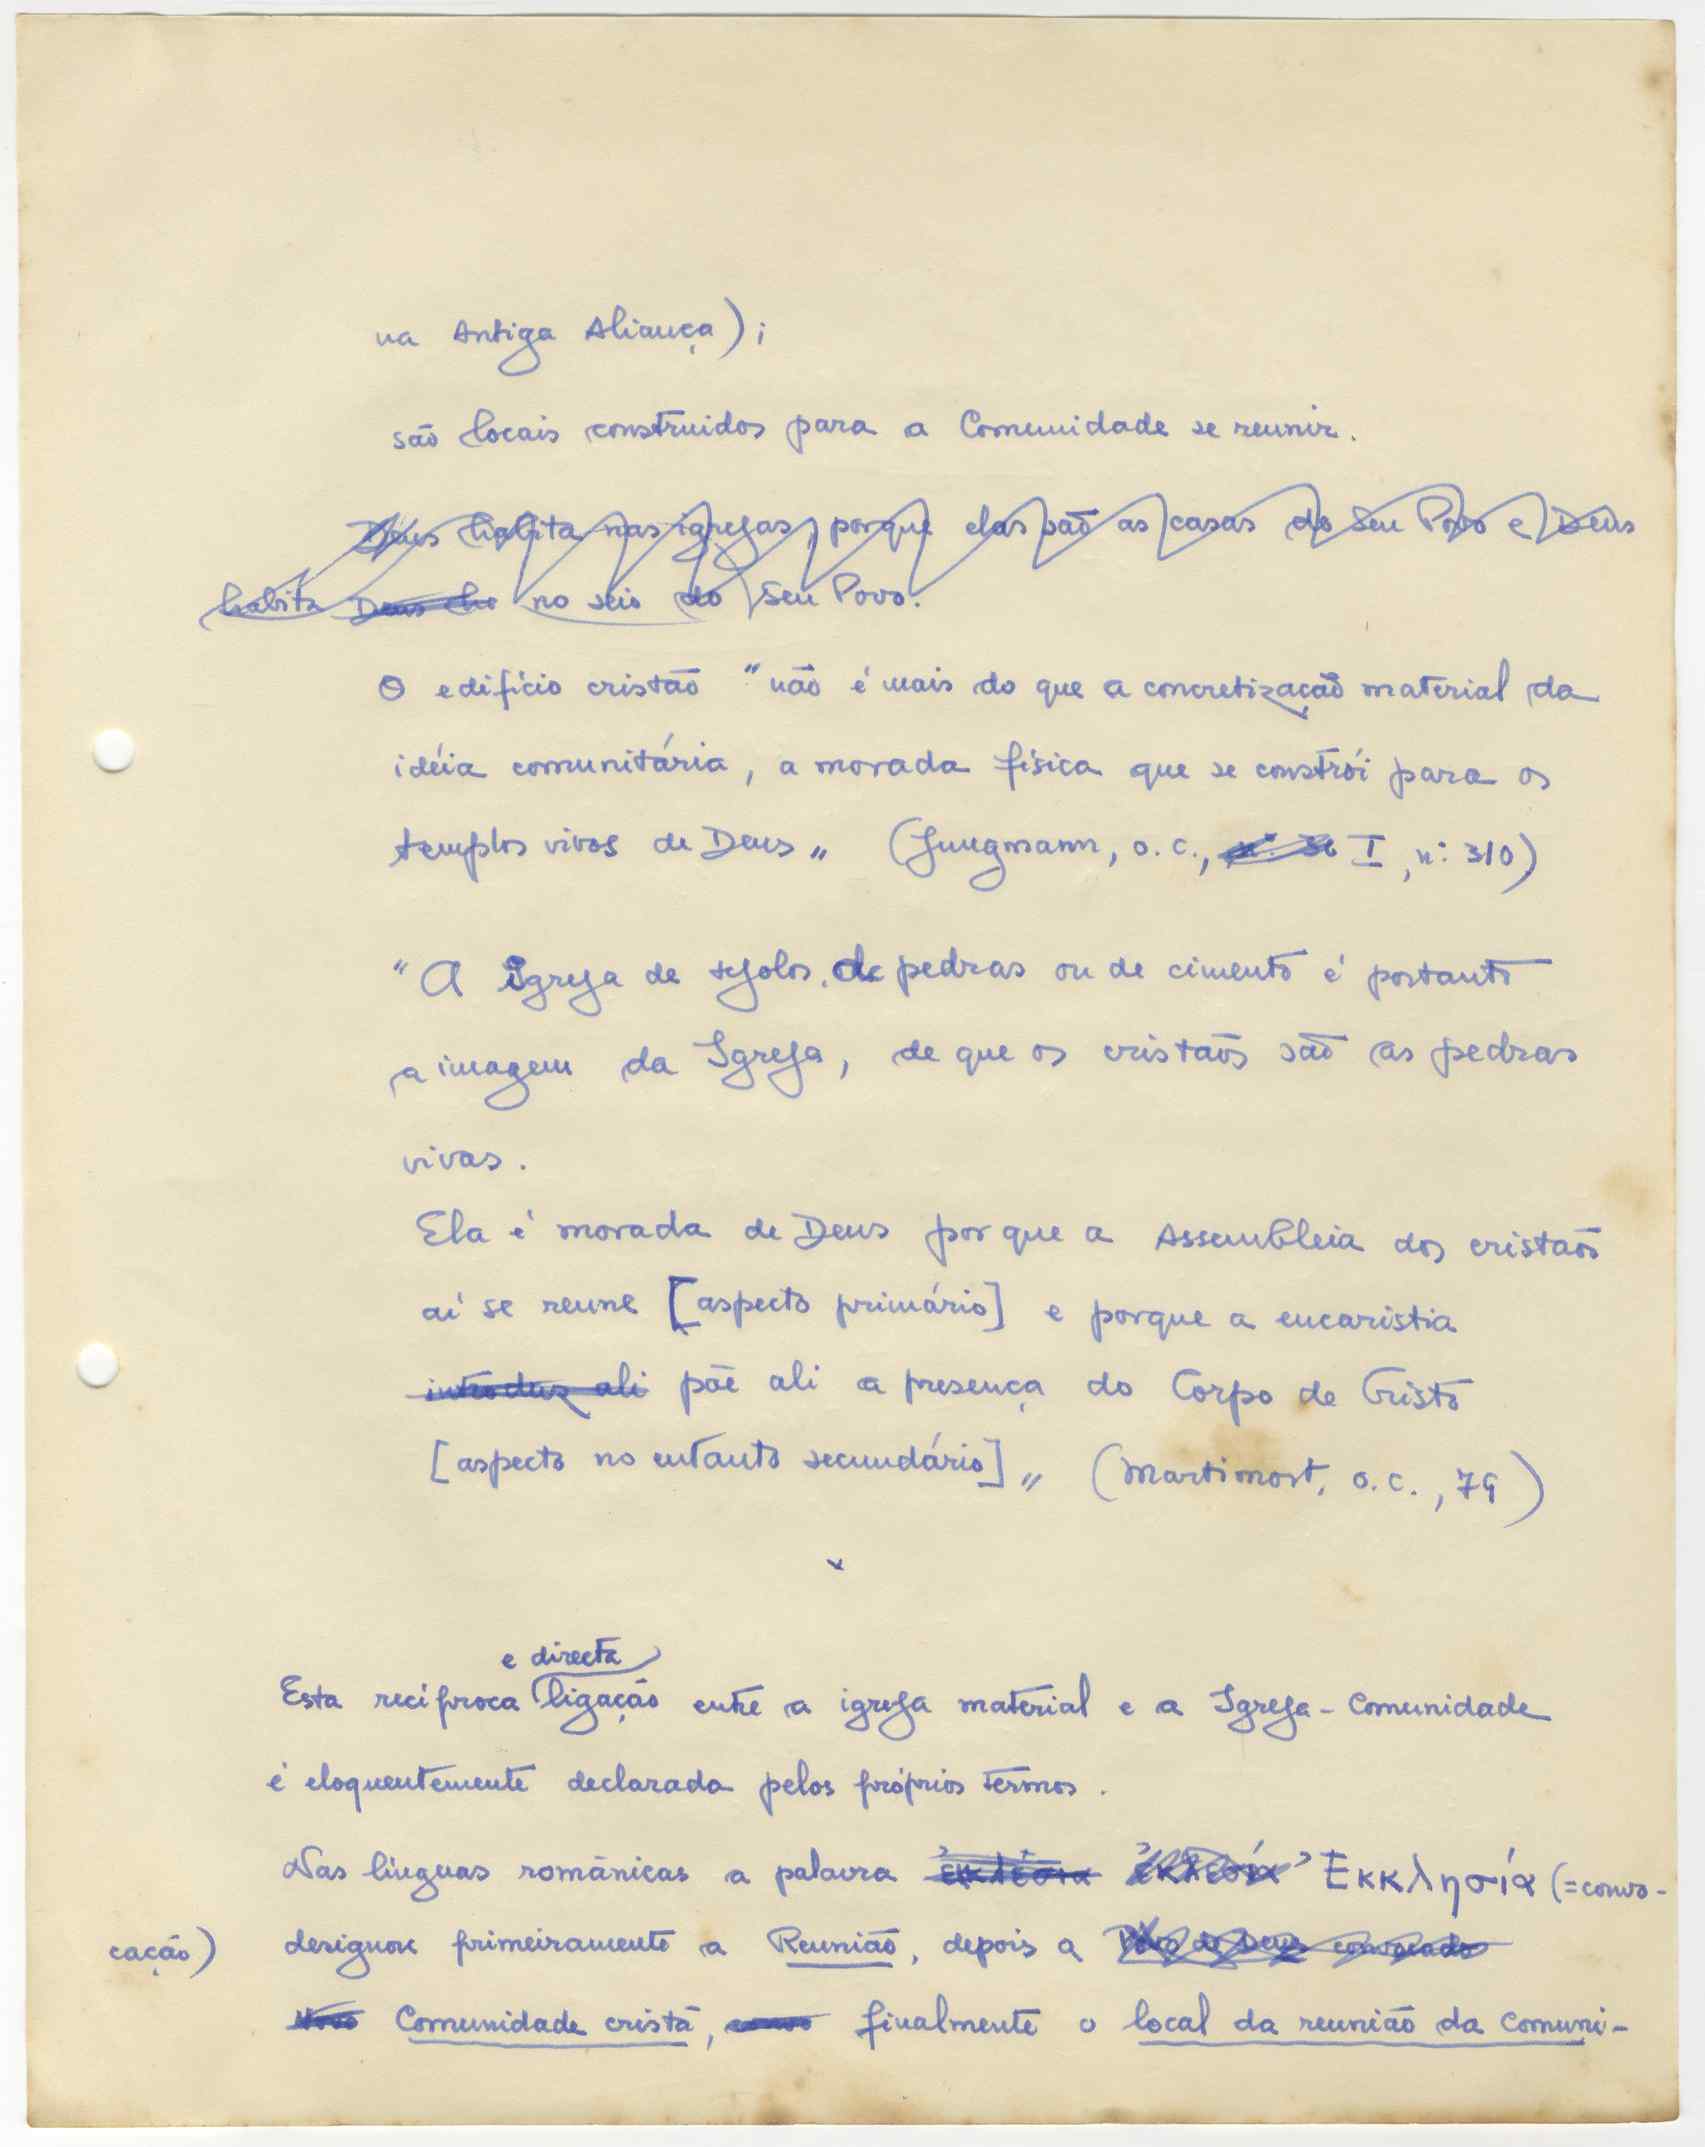 na Antiga Aliança);
são locais construidos para a Comunidade se reunir.
Deus habita nas igrejas, porque elas são as casas do Seu Povo e Deus
habita Deus no seio do Seu Povo.
O edifício cristão "não é mais do que a concretização material da
idéia comunitária, a morada física que se constrói para os
templos vivos de Deus" (Jungmann, o.c., I, n: 310)
"A igreja de tijolos, de pedras ou de cimento é portanto
a imagem da Igreja, de que os cristãos são as pedras
vivas.
Ela é morada de Deus porque a Assembleia dos cristãos
aí se reune [aspecto primário] e porque a eucaristia
introduz ali põe ali a presença do Corpo de Cristo
[aspecto no entanto secundário]" (Martimort, o.c., 79)
x
e directa
Esta recíproca ligação entre a igreja material e a Igreja-Comunidade
é eloquentemente declarada pelos próprios termos.
Nas línguas românicas a palavra Ἐκκλησία (=convo-
cação) designou primeiramente a Reunião, depois a Povo de Deus convocado
Novo Comunidade cristã, como finalmente o local da reunião da comuni-